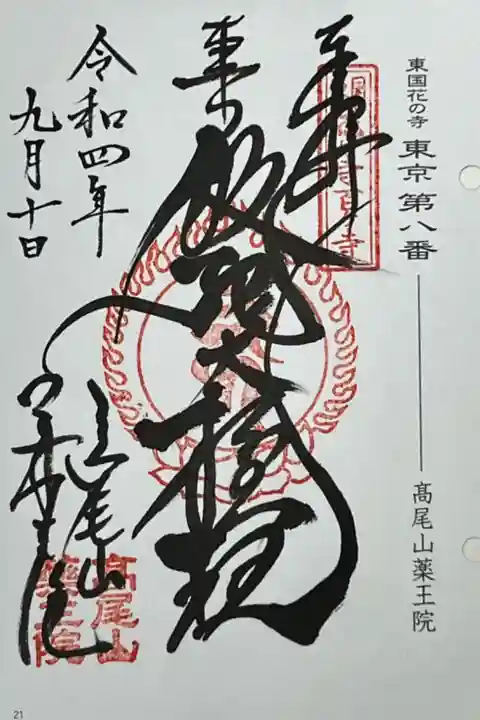 東国花の寺 東京 第八番 高尾山薬王院
奉拝
飯縄大権現
令和四年
九月十日
高尾山
薬王院
高尾山
薬王院
21